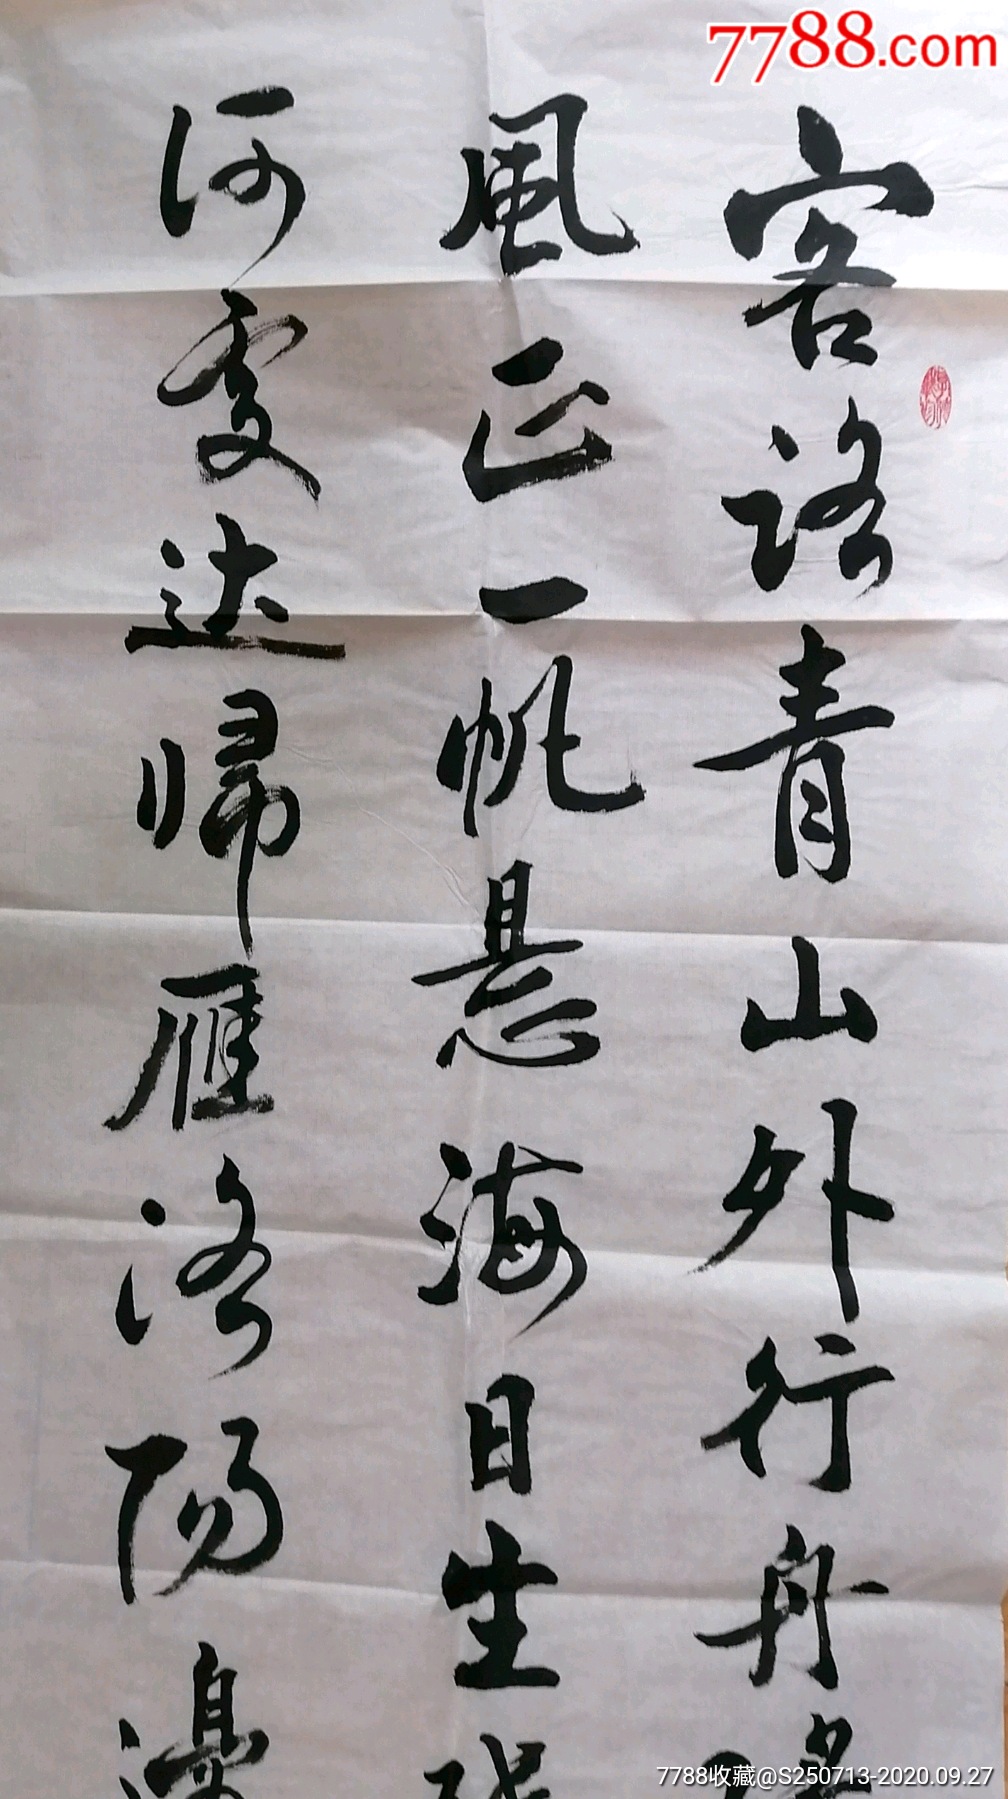 7788.com
客路青山外行舟绿
風正一帆悬海日生残
何處达歸雁洛陽邊
7788收藏@S250713-2020.09.27